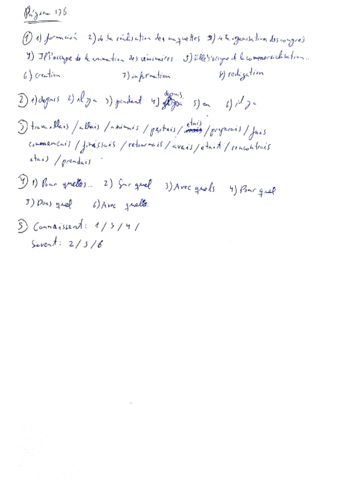 Página 136
① 1) formación 2) de la réalisation des maquettes 3) de la organisation des congrés
4) s'occupe de la animation des séminaires 5) s'occupe de la commercialisation
6) creation 7) information 8) redaction
② 1) depuis 2) il y a 3) pendant 4) depuis 5) en 6) il y a
③ travaillais / allais / animais / partais / étais / preparais / fais
commençais / finissais / retournais / avais / etait / rencontrais
etais / prendais
④ 1) Pour quelles... 2) Sur quel 3) Avec quels 4) Pour quel
5) Dans quel 6) Avec quelle
⑤ Connaissent: 1 / 3 / 4 /
Savent: 2 / 5 / 6